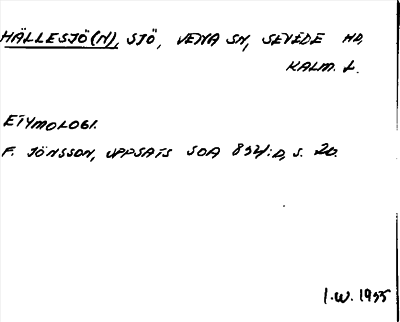 HÄLLESJÖ(N), SJÖ, VENA SN, SEVEDE HD,
KALM. L.
ETYMOLOGI.
F. JÖNSSON, UPPSATS SOA 892:D, S. 20.
I.W. 1955